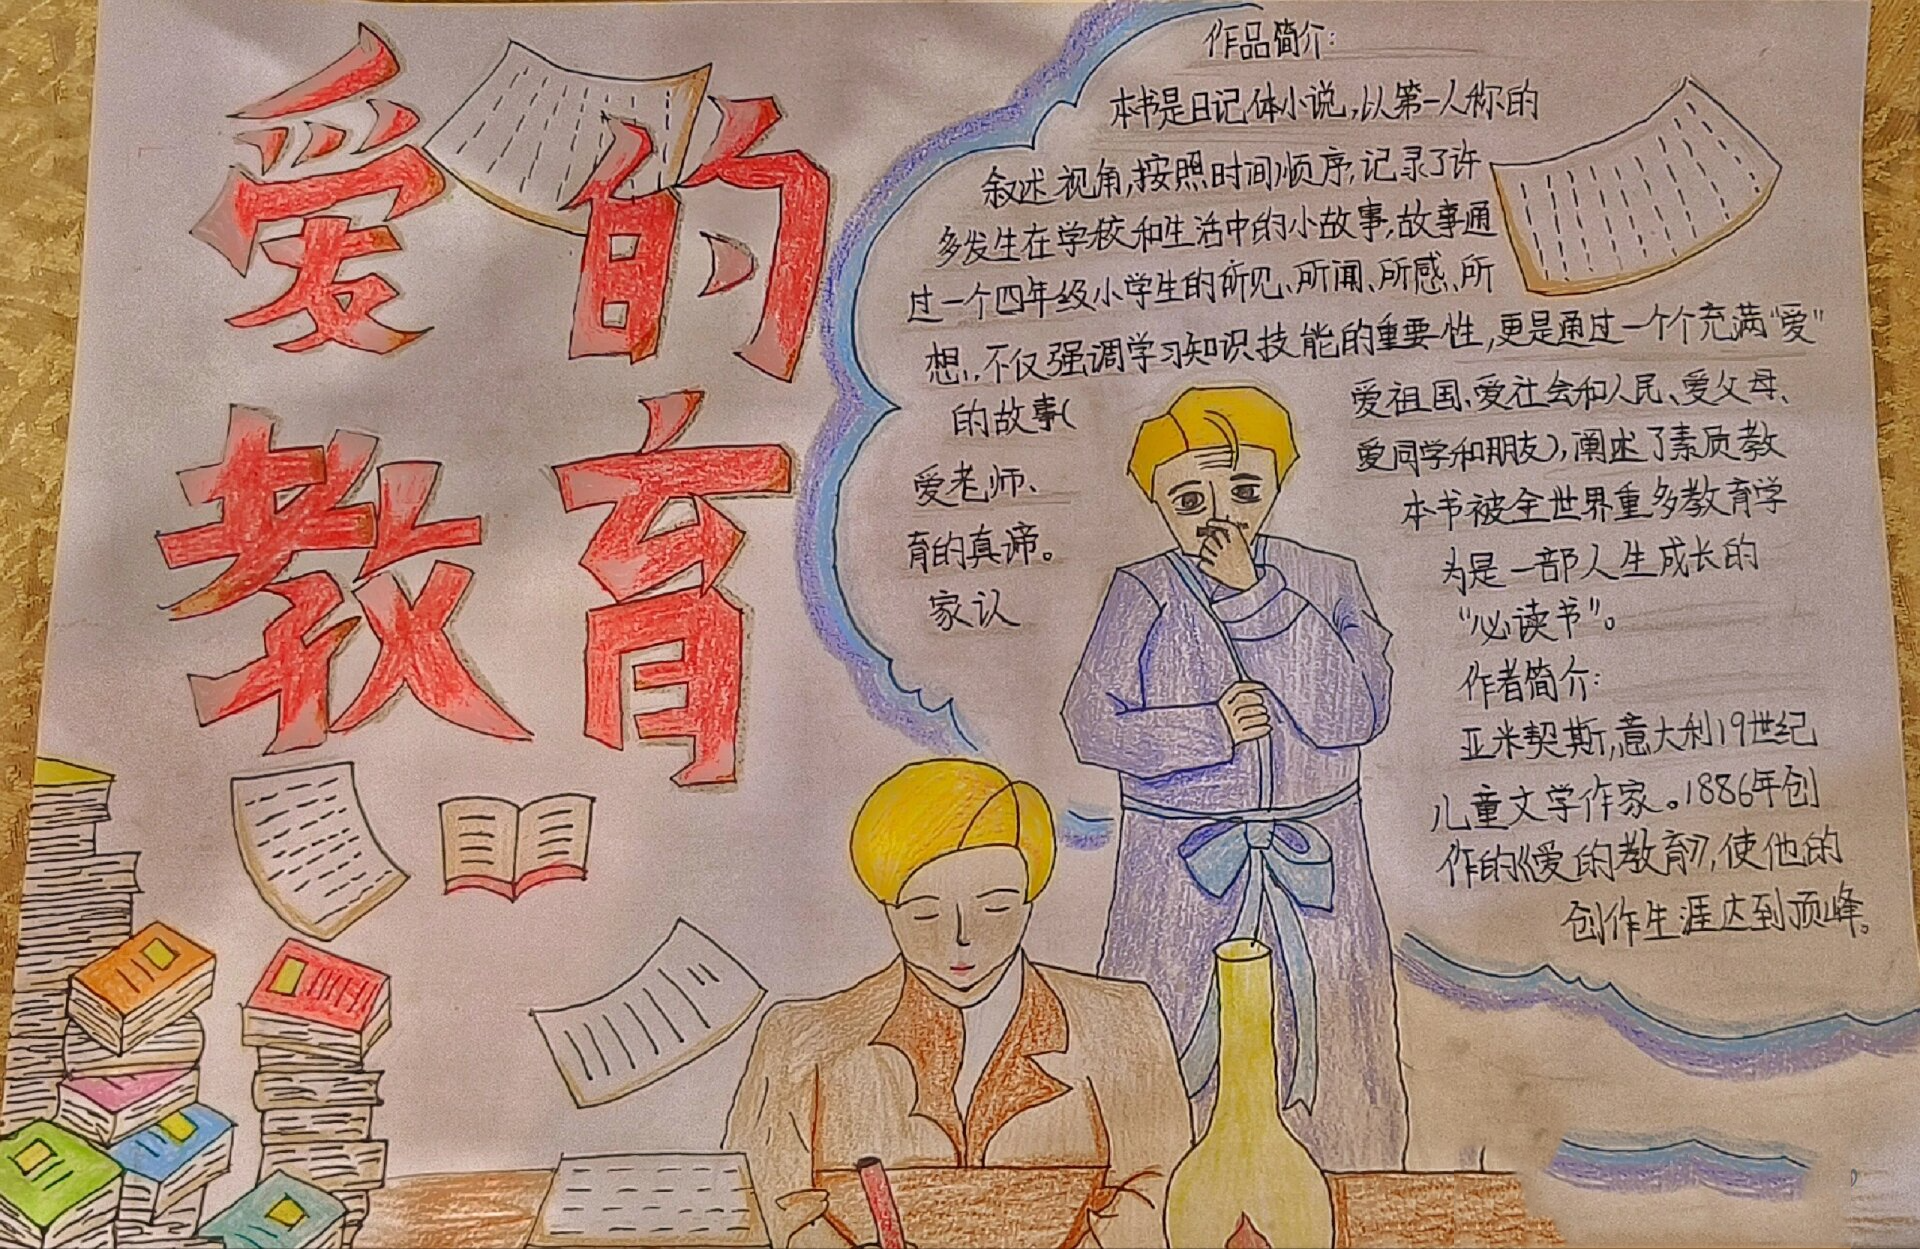 爱的
教育
作品简介:
本书是日记体小说,以第一人称的
叙述视角,按照时间顺序,记录了许
多发生在学校和生活中的小故事,故事通
过一个四年级小学生的所见、所闻、所感、所
想,不仅强调学习知识技能的重要性,更是通过一个个充满“爱”
的故事( 爱祖国、爱社会和人民、爱父母、
爱老师、 爱同学和朋友),阐述了素质教
育的真谛。 本书被全世界重多教育学
家认 为是一部人生成长的
“必读书”。
作者简介:
亚米契斯,意大利19世纪
儿童文学作家。1886年创
作的《爱的教育》,使他的
创作生涯达到顶峰。